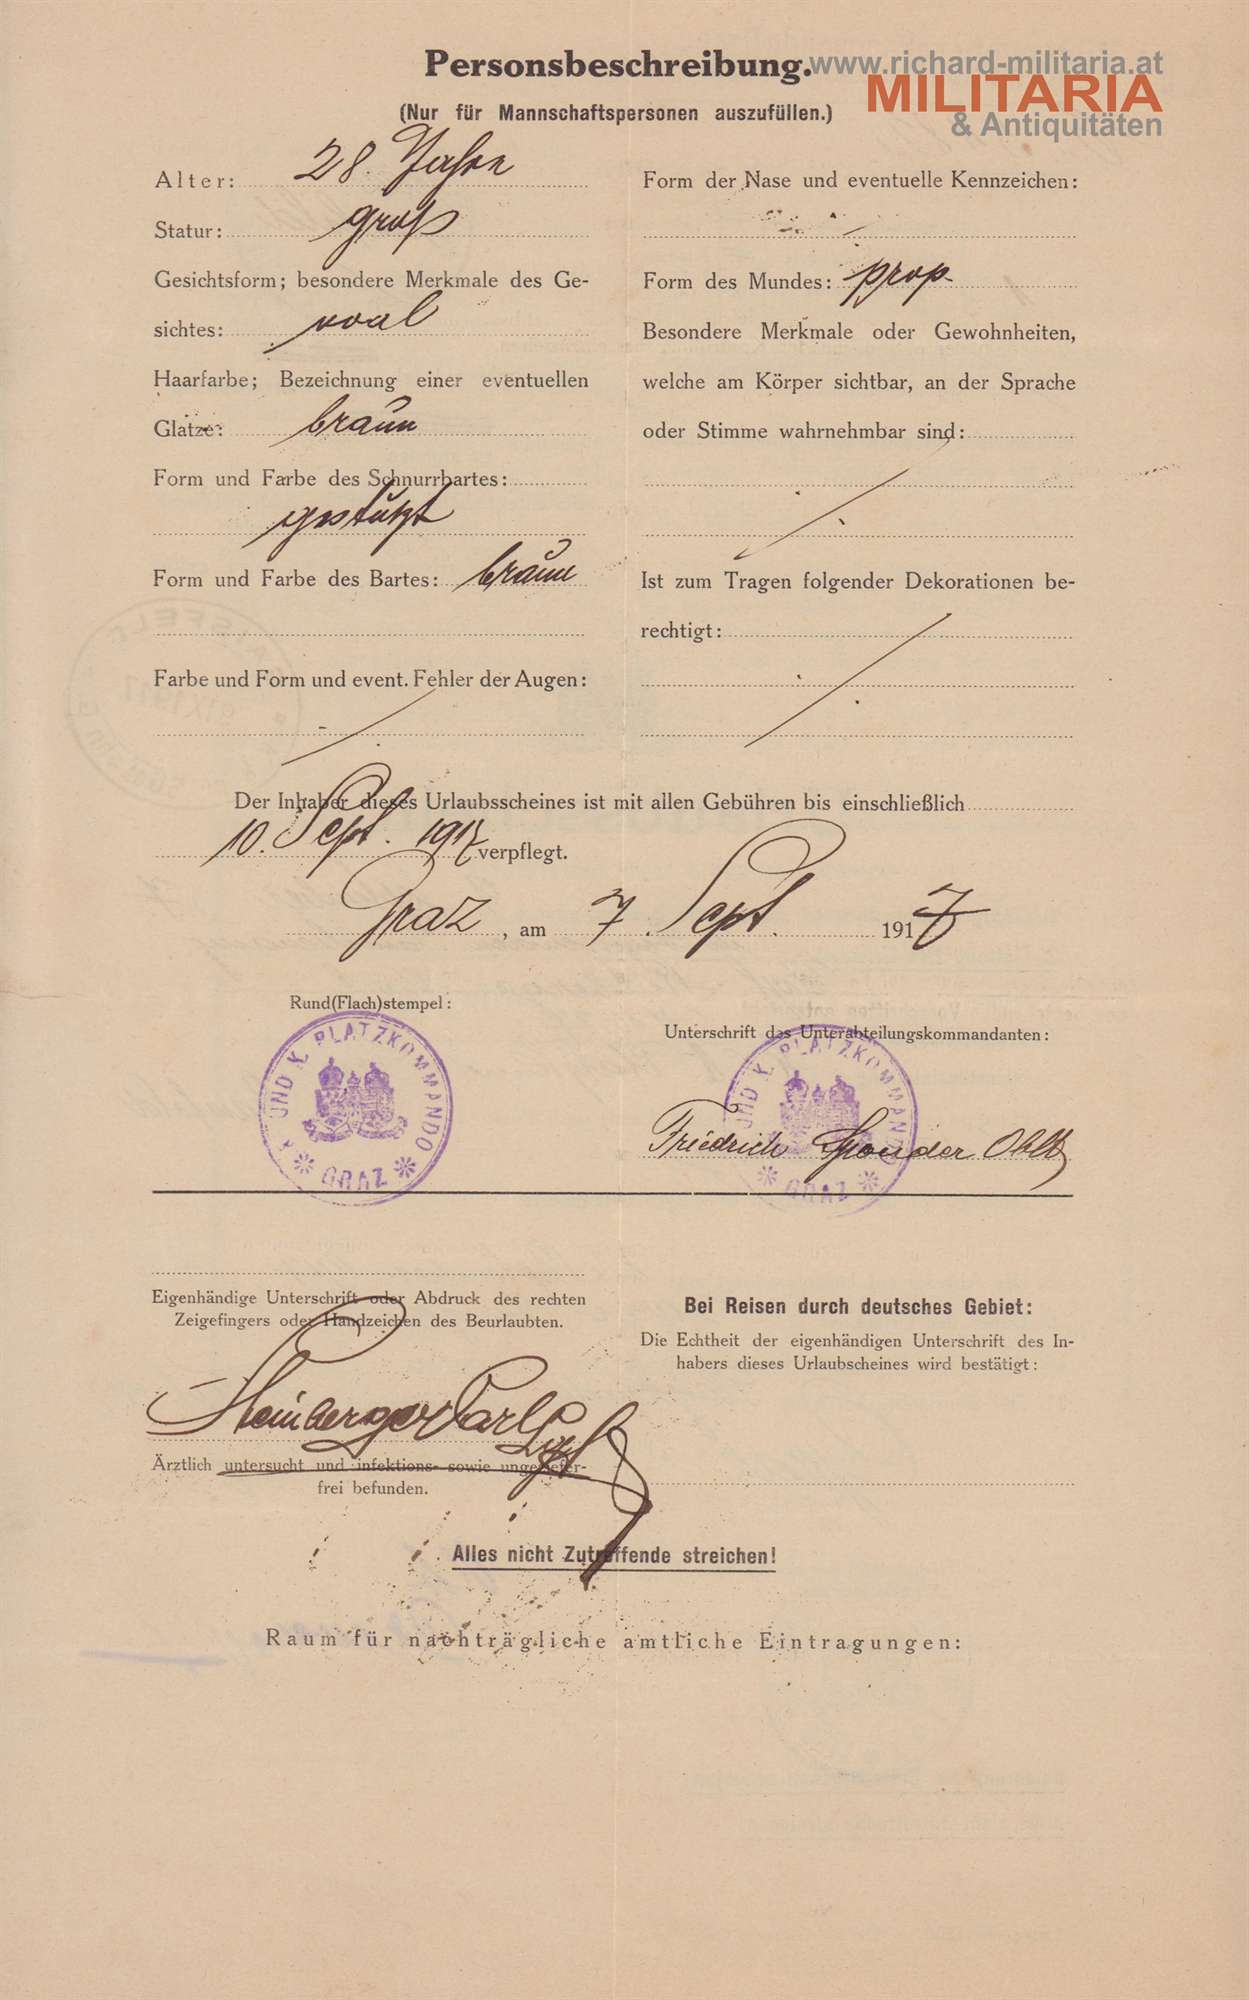 Personsbeschreibung.
www.richard-militaria.at
MILITARIA
& Antiquitäten
(Nur für Mannschaftspersonen auszufüllen.)
Alter: 28. Jahre
Statur: groß
Gesichtsform; besondere Merkmale des Ge-
sichtes: oval
Haarfarbe; Bezeichnung einer eventuellen
Glatze: braun
Form und Farbe des Schnurrbartes:
gestutzt
Form und Farbe des Bartes: braun
Farbe und Form und event. Fehler der Augen:
Form der Nase und eventuelle Kennzeichen:
Form des Mundes: prop.
Besondere Merkmale oder Gewohnheiten,
welche am Körper sichtbar, an der Sprache
oder Stimme wahrnehmbar sind:
Ist zum Tragen folgender Dekorationen be-
rechtigt:
Der Inhaber dieses Urlaubsscheines ist mit allen Gebühren bis einschließlich
10. Sept. 1917 verpflegt.
Graz, am 7. Sept. 1917
Rund(Flach)stempel:
K. UND K. PLATZKOMMANDO
GRAZ
Unterschrift des Unterabteilungskommandanten:
K. UND K. PLATZKOMMANDO
GRAZ
Friedrich Oblt
Eigenhändige Unterschrift oder Abdruck des rechten
Zeigefingers oder Handzeichen des Beurlaubten.
Steinberger Carl
Ärztlich untersucht und infektions- sowie ungeziefer-
frei befunden.
Bei Reisen durch deutsches Gebiet:
Die Echtheit der eigenhändigen Unterschrift des In-
habers dieses Urlaubscheines wird bestätigt:
Alles nicht Zutreffende streichen!
Raum für nachträgliche amtliche Eintragungen: